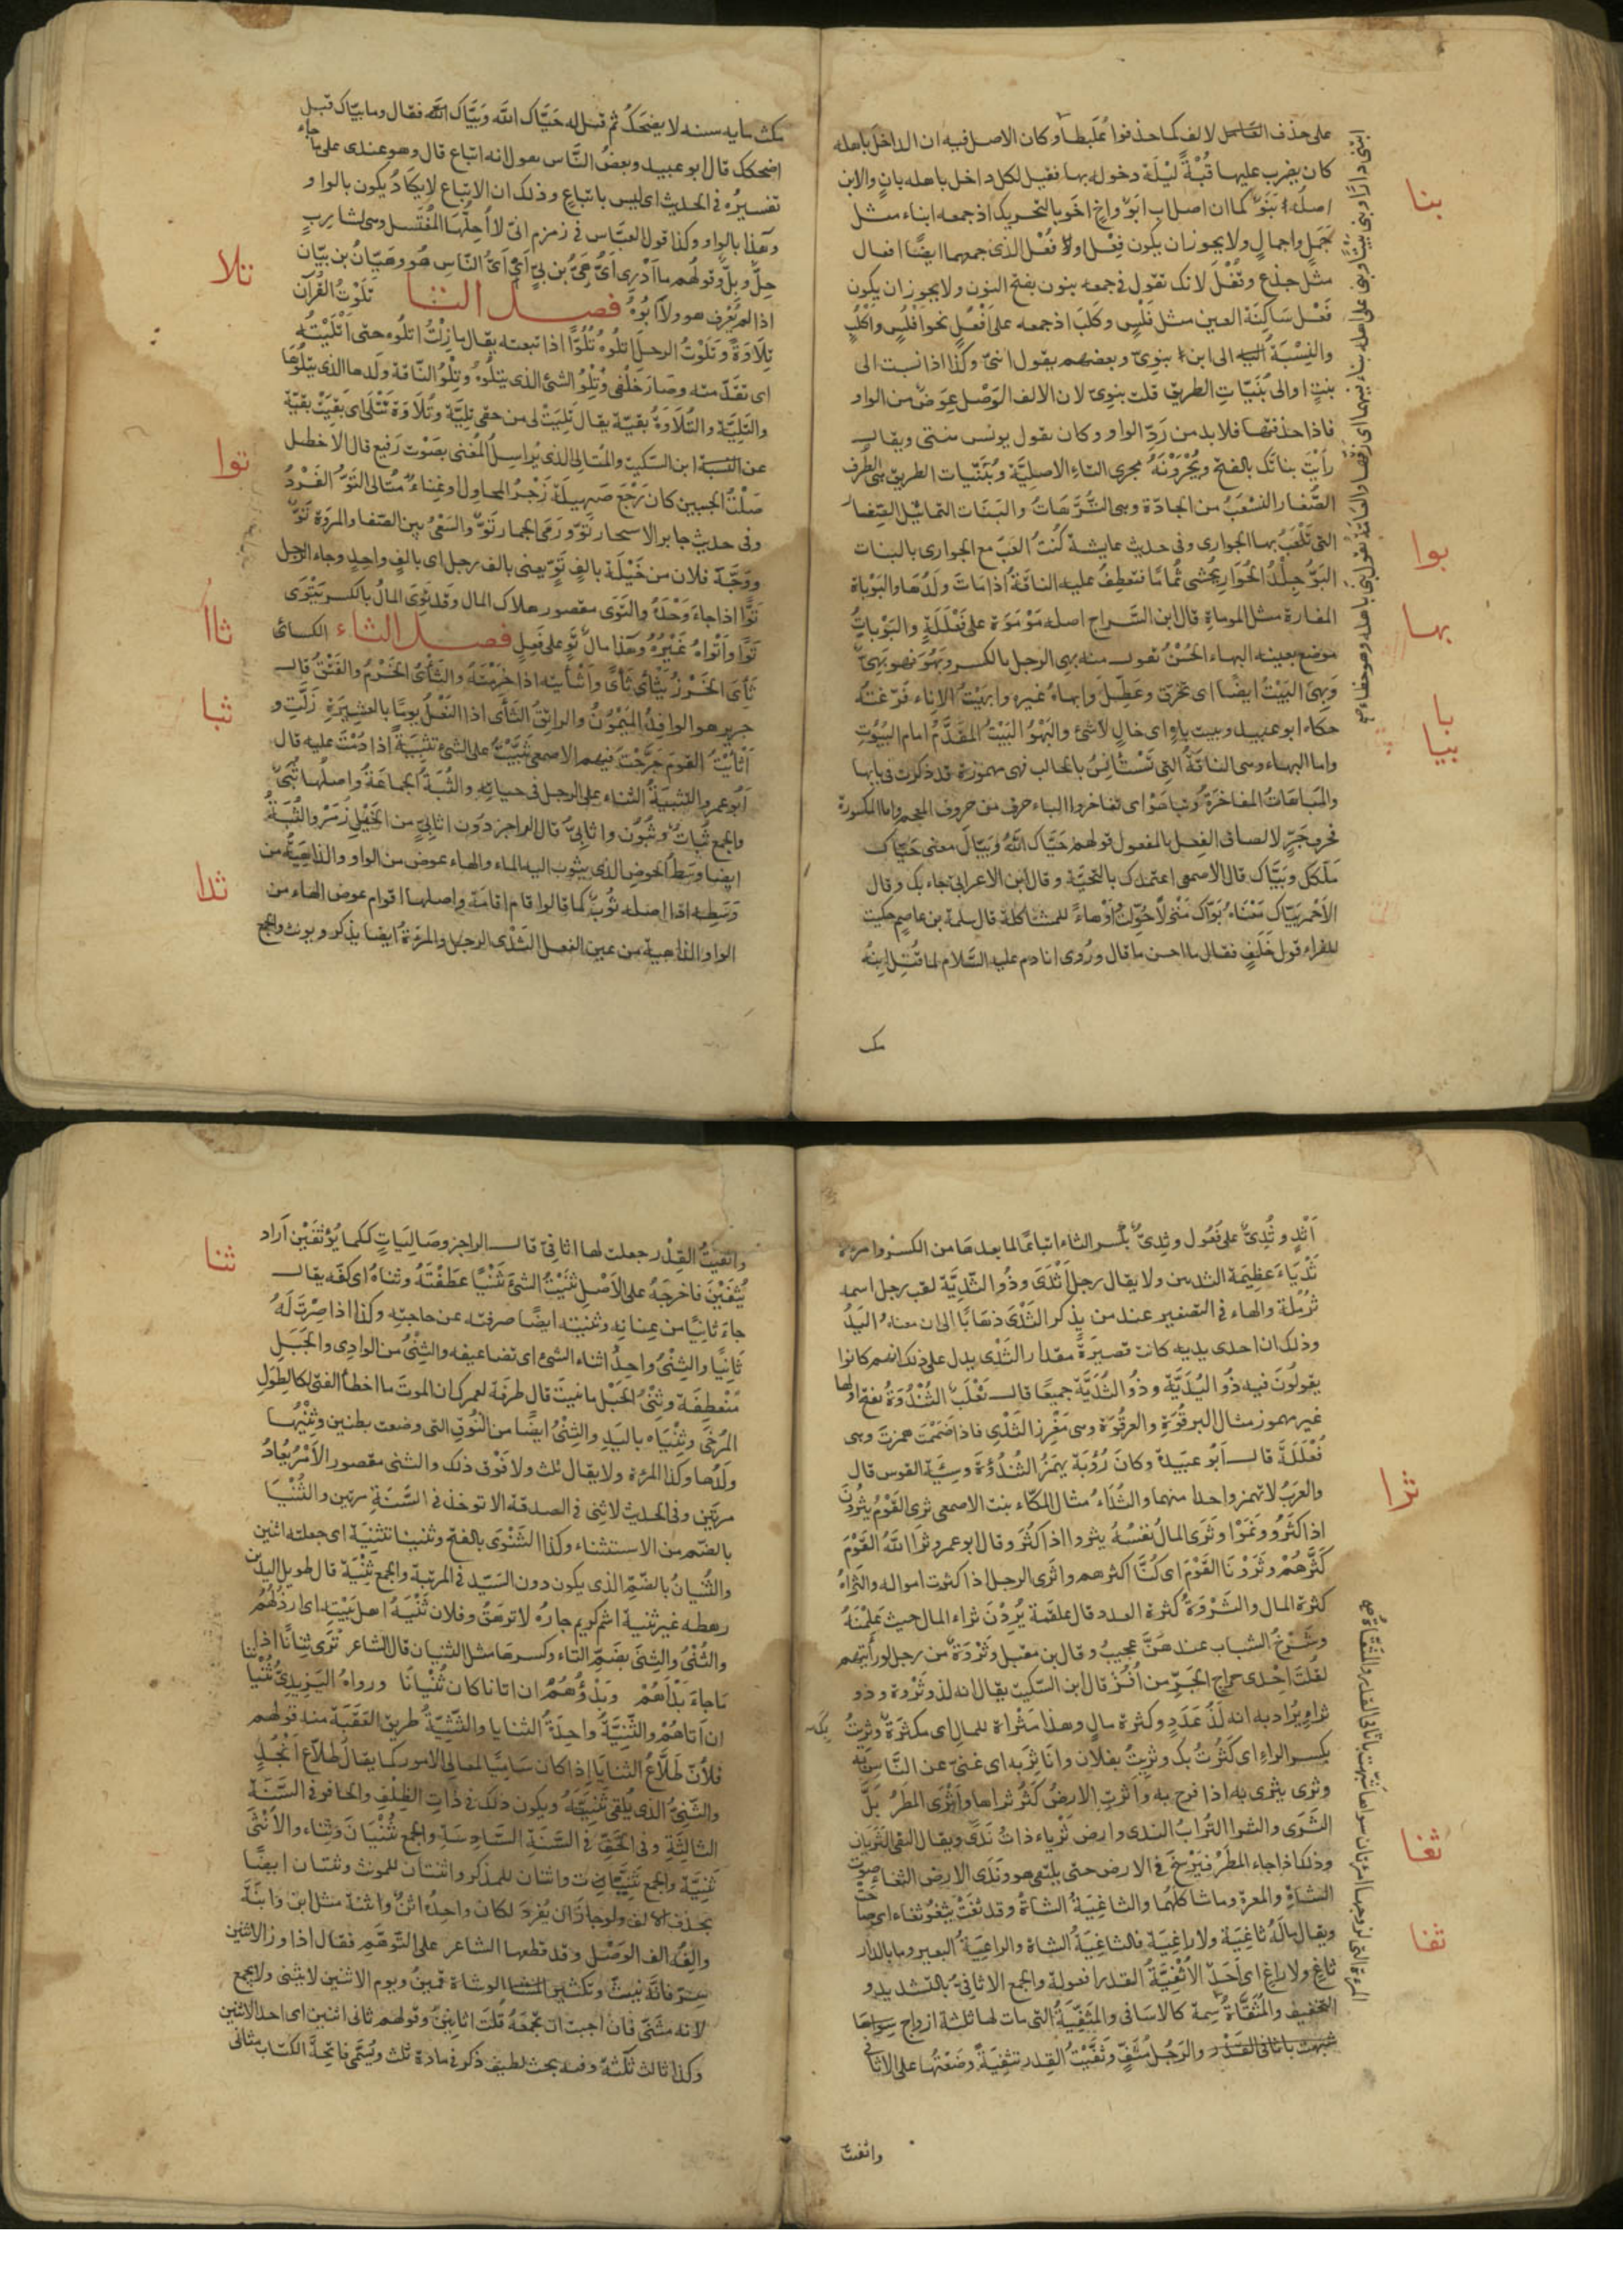 على حذف لالف كما حذفوا عُلَبطا وكان الاصل فيه ان الداخل باهله
كان يضرب عليها قُبّةً ليلَة دخوله بها فقيل لكل داخل باهله بانٍ والابن
اصلُه بَنَوٌ كما ان اصل ابٍ ابَوٌ واخٍ اخَو بالتحريك اذ جمعه ابناء مثل
جَمَلٍ واجمالٍ ولا يجوز ان يكون فِعْل اولا فُعْل الذى جمعهما ايضًا افعال
مثل جذع وقُفْل لانك تقول فى جمعه بنون بفتح النون ولا يجوز ان يكون
فَعْل سَاكِنَة العين مثل فَلْسٍ وكَلب اذ جمعه على اَفْعُلٍ نحو افْلُسٍ واَكْلُبٍ
والنِسْبَة الى ابن بنوىّ وبعضهم يقول ابنىّ وكذا اذا نسبت الى
بنتٍ او الى بُنَيّاتِ الطريق قلت بنوىّ لان الالف الوَصْل عِوَضٌ من الواو
فاذا حذفتها فلابد من رَدّ الواو وكان يقول يونس بنتى ويقال
رأيْتَ بناتَك بالفتح ويُجْرُونَهُ مجرى التاء الاصليَّة وبُنَيّات الطريق هى الطُرف
الصِّغار التشعَبُ من الجادّة وهى التُّرَّهَاتُ والبَنات التماثيل الصِّغار
التى تَلْعَبُ بها الجوارى وفى حديث عايشة كُنتُ العَبُ مع الجوارى بالبنات
البَوُّ جِلْدُ الحُوَارِ يُحْشى ثُمامًا فتعطفُ عليه الناقةُ اذا ماتَ ولَدُها والبَوْباة
المفازة مثل الموماةِ قال ابن السَّراج اصله مَوْمَوَة على فَعْلَلَةٍ والبَوْباةُ
موضع بعينه البهاء الحُسْنُ تقول منه بهى الرجل بالكسر وبَهُوَ فهو بَهِىٌّ
وبَهِىَ البَيْتُ ايضًا اى تخرّقَ وعُطِّل وابهاهُ غيره وابهَيْتُ الاناء فَرّغتُه
حكاه ابو عبيد وبيت باهٍ اى خالٍ لا شئ والبَهْوُ البَيْتُ المُقَدَّمُ امام البُيُوتِ
واما البهاء وهى الناقةُ التى تَسْتَأنِسُ بالحالب فهى مهموزة قد ذكرت فى بابها
والمُبَاهاةُ المفاخَرَةُ وتباهَوْا اى تفاخروا الباء حرف من حروف المعجم واما المكسورة
فحرف جَرٍّ لالصاق الفعل بالمفعول قولهم حَيَّاك اللهُ وبَيَّاكَ معنى حَيّاك
مَلّكَكَ وبَيَّاك قال الاصمعى اعتمدك بالتحيّة وقال ابن الاعرابى جاء بك وقال
الاَحْمر بَيّاك مَعْناه بَوّاك مَنْزلاً للمشاكلة قال سلمة بن عاصم حكيت
للفراء قول خَلَفٍ فقال ما احسن ما قال ورُوى ان ادم عليه السّلام لما قُتِل ابنُهُ
مك
بنا
بوا
بها
با
بيا
مكث مايه سنه لا يضحكُ ثم قيل له حَيَّاك الله وبَيَّاك الله فقال وما بيّاك قيل
اضحكك قال ابو عبيد وبعضُ النَّاس يقول انه اتباع قال وهو عندى على ما جاء
تفسيرُه فى الحديث اى ليس باتباعٍ وذلك ان الاتباع لا يكادُ يكون بالواو
وهذا بالواو وكذا قول العبَّاس فى زمزم انىّ لا اُحِلُّهَا المُغْتسل وهى لشارِبٍ
حِلٌّ وبِلٌّ وقولهم ما اَدْرى اَىُّ هَىِّ بن بَىٍّ اى اَىُّ النّاس هُو وهَيّانُ بن بيّان
اذا لم يُعْرف هو ولا ابُوهُ فصل التا تَلَوْتُ القُرآن
تِلَاوَةً وتَلَوْتُ الرجلَ اتلُوه تُلُوًّا اذا تبعته يقال ما زِلْتُ اتلُوه حتى اَتْلَيْتُه
اى تقدّمته وصَار خَلْفى وتِلْوُ الشئ الذى يتلُوهُ وتِلْوُ النّاقة ولَدها الذى يتلُوها
والتَلِيَّة والتُلَاوَةُ بقيّة يقال تَلِيَتْ لى من حقى تلِيَّة وتُلَاوَة تَتْلَى اى بَقِيَتْ بقيّة
عن ابن السّكيت والمُتالِى الذى يُراسِلُ المُغنى بصَوْت رَفيع قال الاخطل
صَلْتُ الجبين كان رَجْعَ صَهيلَهِ زَجْرُ المحاول او غِناءُ مُتالِى التَوُّ الفَرْدُ
وفى حديث جابر الاستجمار تَوّ ورَمَى الجمار تَوّ والسّعْىُ بين الصّفا والمروَة تَوٌّ
ووَجَّهَ فلان من خَيْلَه بالفٍ تَوٍّ يعنى بالف رجل اى بالفٍ واحدٍ وجاء الرجل
تَوًّا اذا جاءَ وَحْدَهُ والتَوَى مقصور هلاك المال وقد تَوِىَ المالُ بالكسر يَتْوَى
تَوًا واَتْواهُ غَيْرُه وهَذا مالٌ تَوٍ على فَعِلٍ فصل الثاء الكسائى
ثأى الخَرْزُ يَثْأى ثأًى واَثْأيته اذا خَرَمْته والثأىُ الخَرْمُ والفَتْقُ قال
جرير هو الوافدُ المَيْمُونُ والراتقُ الثَأى اذا النَعْلُ يومًا بالعَشِيرَةِ زَلّتِ و
اَثأيْتُ القومَ جَرَحْت فيهم الاصمعى ثَبَّيْتُ على الشئ تثْبِيَةً اذا دُمْتَ عليه قال
ابُو عمرو التثبيَةُ الثناء على الرجل فى حياته والثُبَةُ الجماعةُ واصلُها ثُبَىٌ
والجمع ثُباتٌ وثُبُون واثابِىُّ قال الراجز دَون اثابِىّ من الخَيلِ زُمَرْ والثُبَةُ
ايضا وسَط الحوضِ الذى يثوبُ اليه الماء والهاء عوض من الواو والذاهِبةُ من
وَسَطِه اذ اصله ثُوَبٌ كما قالوا قام اقامَةً واصلها اقوام عوض الهاء من
الواو الذاهبة من عين الفعل الثَدْى الرجل والمرءَةُ ايضا يذكر ويونث والجمع
تلا
توا
ثاا
ثبا
ثدا
اَثْدٍ وثُدِىٌّ على فُعُول وثِدِىٌّ بكسر الثاء اتباعًا لما بعدها من الكسر وامرءة
ثَدْيَاء عظيمَة الثديين ولا يقال رجل اَثْدَى وذُو الثّدَيَّة لقب رجل اسمه
ثُرْمُلة والهاء فى التصغير عند من يذكر الثَدْىَ ذهابًا الى ان معناهُ اليَدُ
وذلك ان احدى يديه كانت قصيرَةً مقدار الثَدْى يدل على ذلك انهم كانوا
يقولُونَ فيه ذُو اليُدَيَّة وذُو الثُدَيَّة جميعًا قال ثَعْلَبٌ الثَنْدُوَةُ بفتح اولها
غير مهموز مثال البرقُوَةِ والعرقُوَة وهى مَغْرِز الثَدْىِ فاذا ضَمَمْتَ همزتَ وهى
فُعْلَلَة قال اَبُو عبَيدة وكانَ رُؤبَة يهمزُ الثُنْدُؤةَ وسِئَة القوس قال
والعرَبُ لا تهمز واحدا منهما والثُدّاءُ مثال المكّاء بنت الاصمعى ثرى القَوْمُ يثرُونَ
اذا كَثُرُوا ونمَوْا وثَرَى المالُ نفسُهُ يثروا اذا كَثُرَ وقال ابو عمرو ثَرَا اللهُ القَوْمَ
كَثّرهُمْ وثَرَوْنَا القَوْمَ اى كُنّا اكثر هم واثْرَى الرجل اذا كثرت امواله والثراءُ
كثرة المال والثَرْوَةُ كثرة العدد قال علقمَة يُرِدْنَ ثراء المال حيث عَلِمْنَهُ
وشَرْخُ الشباب عندهُنَّ عجيبُ وقال بن مقبل وثَرْوَة من رجل لو رأيتهم
لقُلتَ احْدى حِراجِ الجَرِّ من اُقُر قال ابن السّكيت يقال انه لذو ثَرْوة وذو
ثراءٍ يُراد به انه لَذُو عَدَدٍ وكثرة مالٍ وهذا مَثْراة للمال اى مكثَرَةٌ وثرِيتُ
بكسر الراء اى كَثُرتُ بك وثرِيتُ بفلان وانا ثَرٍبه اى غنىٌ عن النَّاس به
وثرى يثرى به اذا فرح به واَثرَتِ الارضُ كثُر ثراها واَثْرَى المطَرُ بَلَّ
الثَرَى والثرا التُرابُ الندى وارضٌ ثَرْياء ذاتُ نَدًى ويقال التقى الثَرَيانِ
وذلك اذا جاء المَطَرُ فيرْسَخَ فى الارض حتى يلتقى هو ونَدَى الارض الثغاء صوت
الشاةِ والمعزة وما شاكلهُما والثاغِيَةُ الشاةُ وقد ثَغَتْ يَثْغُو ثغاء اى صاحت
ويقال ما لَهُ ثاغِيَة ولا راغِيَة فالثاغِيَةُ الشاة والراغِيَةُ البعير وما بالدّار
ثاغٍ ولا راغٍ اى اَحَدٌ الاُثْفِيَّةُ القدر افعولة والجمع الاثافىُّ بالتشديد و
التخفيف والمُثَفَّاةُ سِمة كالاثافى والمثَفِّيَةُ التى مات لها ثلثة ازواج
شبهت باثافى القدر والرجُلُ مُثَفٍّ وثَفَّيْتُ القِدر تثفِيَةً وضَعْتُها على الاثافى
واثفيت
ثرا
ثغا
ثفا
واثفيتُ القِدْر جعلت لها اثافىّ قال الراجز وصَالِيَاتٍ ككما يُؤَثْفَيْن اَراد
يُثْفَيْنَ فاخرجَهُ على الاَصْل ثنَيْتُ الشئَ ثَنْيًا عَطَفْتُهُ وثناهُ اى كفّه يقال
جاءَ ثانِيًا من عِنانِهِ وثنَيْته ايضًا صرفته عن حاجته وكذا اذا صِرْتَ لَهُ
ثَانِيًا والثِنْىُ واحِدُ اثناء الشئ اى تضاعيفه والثِنْىُ من الوادى والجَبَل
مُنْعطِفَة وثِنْىُ الحَبْل ما ثنيْتَ قال طرفَة لعمرك ان الموتَ ما اخطأ الفتى لكالطِوَلِ
المُرْخَى وثِنْياه باليَدِ والثِنْىُ ايضًا من النُوقِ التى وضعت بطنين وثِنْيُها
ولَدُها وكذا المرءة ولا يقال ثلث ولا فَوْق ذلك والثنى مقصور الاَمْرُ يُعادُ
مرتين وفى الحديث لا ثِنى فى الصدقه اى لا توخذ فى السَّنَةِ مرتين والثُنْيَا
بالضّم من الاستثناء وكذا الثَنْوَى بالفتح وثنيتا تثنِيَة اى جعلته اثنين
والثُنْيانُ بالضمّ الذى يكون دون السَيّد فى المرتبة والجمع ثِنْيَة قال طويل اليدين
رهطه غير ثنية اشم كريم جارُه لا ترهَقُ وفلان ثِنْيَةُ اهل بَيْتِه اى ارذلُهُم
والثُنْىُ والثِنَى بضَمّ الثاء وكسرها مثل الثنيان قال الشاعر تَرَى ثنانًا اذا
ما جاءَ بَدْأَهُمْ وبَدْؤهُمْ ان اتانا كان ثُنْيانًا ورواهُ اليَزيدىُّ ثُنْيانُنَا
ان اَتاهُمْ والثنِيَّةُ واحِدَةُ الثنايا والثنِيّةُ طريق العَقَبَة منه قولهم
فلانٌ طَلّاعُ الثنايا اذا كان سَامِيًا لمعالى الامور كما يقالُ طلّاع اَنجُدٍ
والثنِىُّ الذى يُلقى ثنيَّتَهُ ويكون ذلك فى ذَاتِ الظِلْفِ والحافر فى السَّنَة
الثالِثَةِ وفى الخُفِّ فى السَّنَةِ السَّادِسَةِ والجمع ثُنْيَان وثِناء والاُنْثَى
ثَنِيَّة والجمع ثنِيّات واثنان للمذكر واثنتان للمونث وثنتان ايضًا
بحذف الالف ولو جازَ ان يُفْردَ لكان واحِدُه اثنٌ واثنة مثل ابن وابنَة
والِفُه الف الوَصْل وقد قطعها الشاعر على التّوهُّمِ فقال اذا جاوز الاثنين
سِرّ فانّه بِنَثٍّ وتكثيرِ الوشاة قمينُ ويوم الاثنين لا يثنى ولا يجمع
لانه مثَنّى فان احببت ان تجمَعَهُ قلت اثانينُ وقولهم ثانى اثنين اى احد الاثنين
وكذا ثالث ثلثَة وفيه بحث لطيف ذكر فى مادة ثلث وتُسَمّى فاتحةُ الكتاب مثانى
ثنا